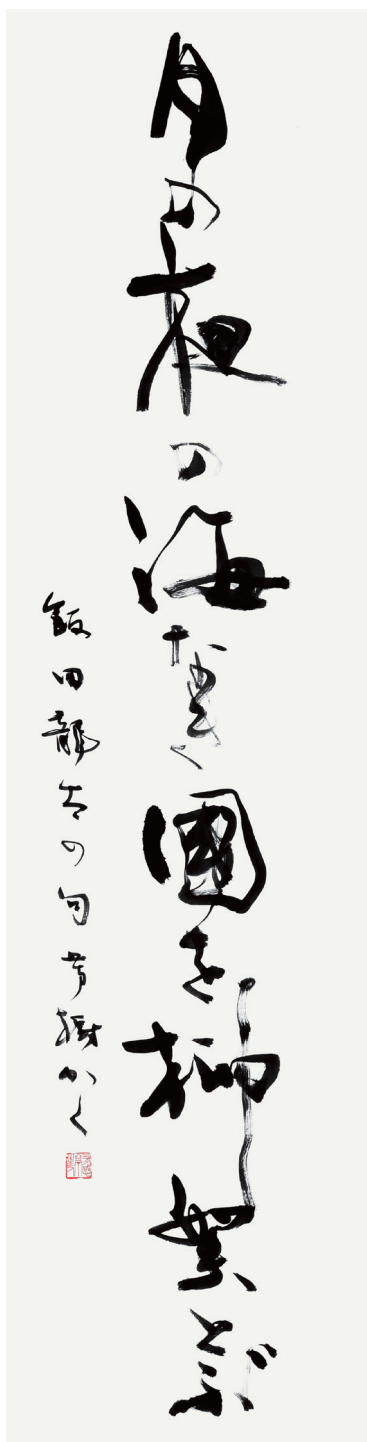 月の夜の海なき國を柳絮とぶ
飯田龍太の句 かく